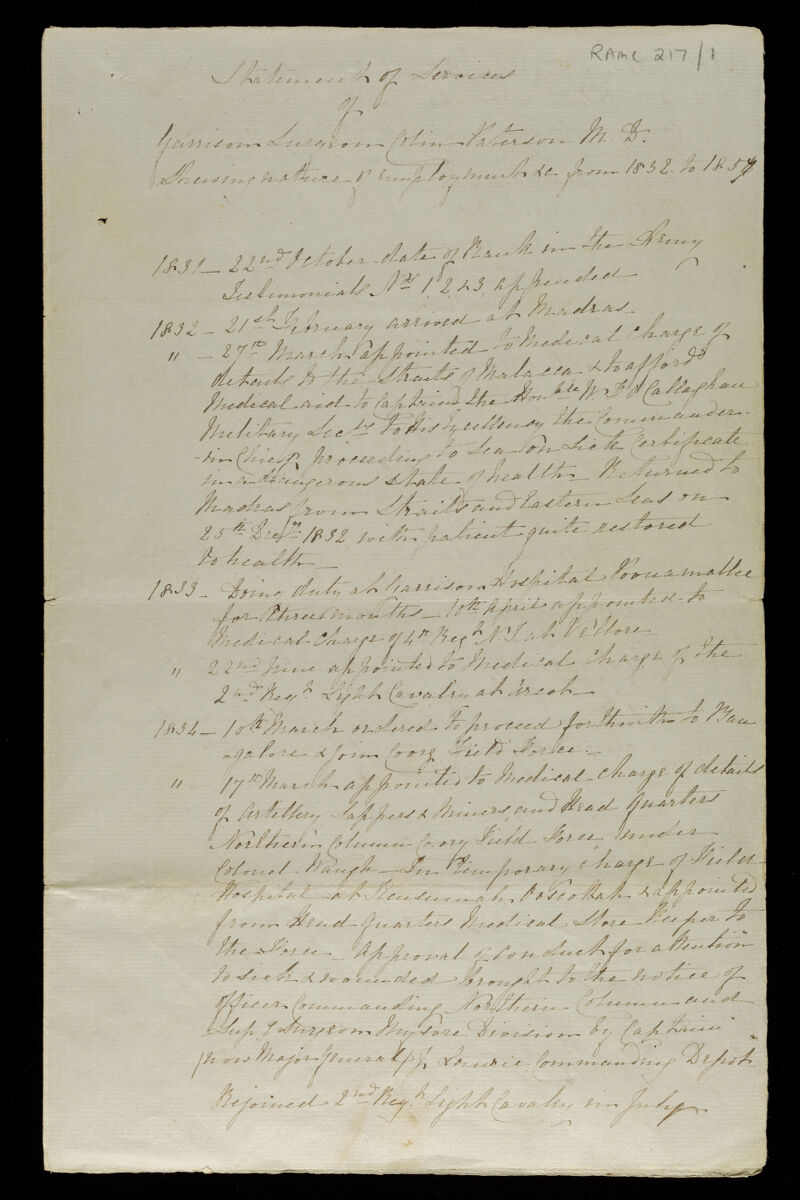 RAMC 217/1
Statement of Services
of
Garrison Surgeon Colin Paterson M.D.
Shewing nature of employment &c from 1832 to 1857
1831 — 22nd October date of Rank in the Army
Testimonials Nos 1 2 & 3 appended
1832 — 21st February arrived at Madras
" — 27th March appointed to Medical Charge of
details to the Straits of Malacca & to afford
Medical aid to Captain the Honble W F O'Callaghan
Military Secty to His Excellency the Commander
-in Chief proceeding to Sea on Sick Certificate
in a dangerous state of health Returned to
Madras from Straits and Eastern Seas on
25th Decr 1832 with patient quite restored
to health —
1833 — Doing duty at Garrison Hospital Poonamallee
for three months — 10th April appointed to
Medical Charge of 4th Regt N.I. at Vellore
" 22nd June appointed to Medical Charge of the
2nd Regt Light Cavalry at Arcot —
1834 — 10th March ordered to proceed forthwith to Ban
-galore & join Coorg Field Force —
" 17th March appointed to Medical charge of details
of Artillery Sappers & Miners, and Head Quarters
Northern Column Coorg Field Force under
Colonel Waugh — In temporary charge of Field
Hospital at & appointed
from Head Quarters Medical Store Keeper to
the Force — Approval of conduct for attention
to sick & wounded brought to the notice of
Officer Commanding Northern Column and
Supt Surgeon Mysore Division by Captain
(now Major General) J Laurie, Commanding Depot
Rejoined 2nd Regt Light Cavalry in July